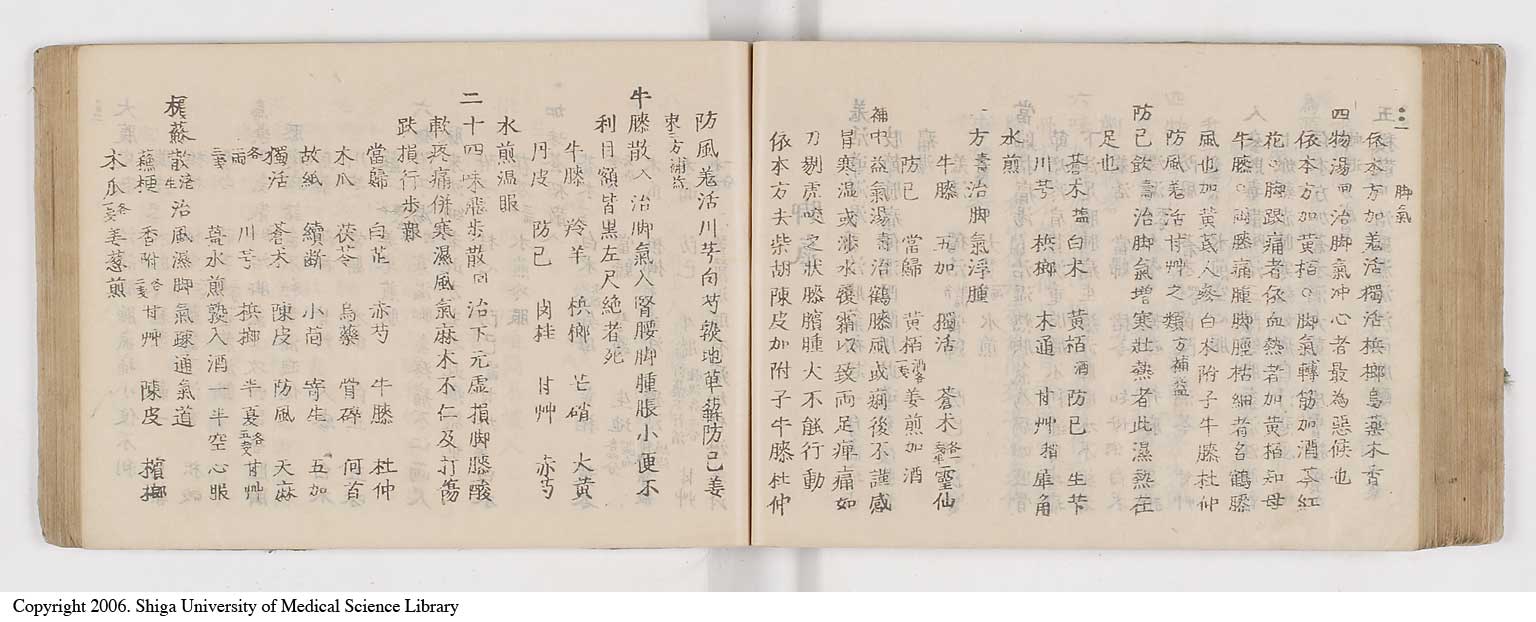 脚氣
依本方加羗活獨活梹榔烏藥木香
四物湯回治脚氣冲心者最為惡候也
依本方加黄栢○脚氣轉筋加酒芩紅
花○脚跟痛者依血熱者加黄栢知母
牛膝○両膝痛腫脚脛枯細者名鶴膝
風也加黄芪人參白朮附子牛膝杜仲
防風羗活甘艸之類方補益
防已飲壽治脚氣增寒壮熱者此濕熱在
足也
蒼木塩白木黄栢酒防已生芐
川芎梹榔木通甘艸稍犀角
水煎
一方壽治脚氣浮腫
牛膝五加獨活蒼木各一靈仙
防已當歸黄栢酒各姜煎加酒
補中益氣湯壽治鶴膝風或痢後不謹感
冒寒温或渉水履霜以致両足痺痛如
刀剔虎咬之状膝臏腫大不能行動
依本方去柴胡陳皮加附子牛膝杜仲
防風羗活川芎白芍熟地萆薢防己姜
棗方補益
牛膝散入治脚氣入腎腰脚腫脹小便不
利目額皆黒左尺絶者死
牛膝羚羊梹榔芒硝大黄
丹皮防已肉桂甘艸赤芍
水煎温服
二十四味飛步散回治下元虚損脚膝酸
軟疼痛併寒濕風氣麻木不仁及打傷
跌損行步艱
當歸白芷赤芍牛膝杜仲
木爪茯苓烏藥骨碎何首
故紙續断小茴寄生五加
獨活蒼木陳皮防風天麻
各一両川芎梹榔半夏各五分甘艸
二戔姜水煎熟入酒一半空心服
檳蘇散活生治風濕脚氣疎通氣道
蘇梗香附各二戔甘艸陳皮檳榔
木瓜各一戔姜葱煎
Copyright 2006. Shiga University of Medical Science Library